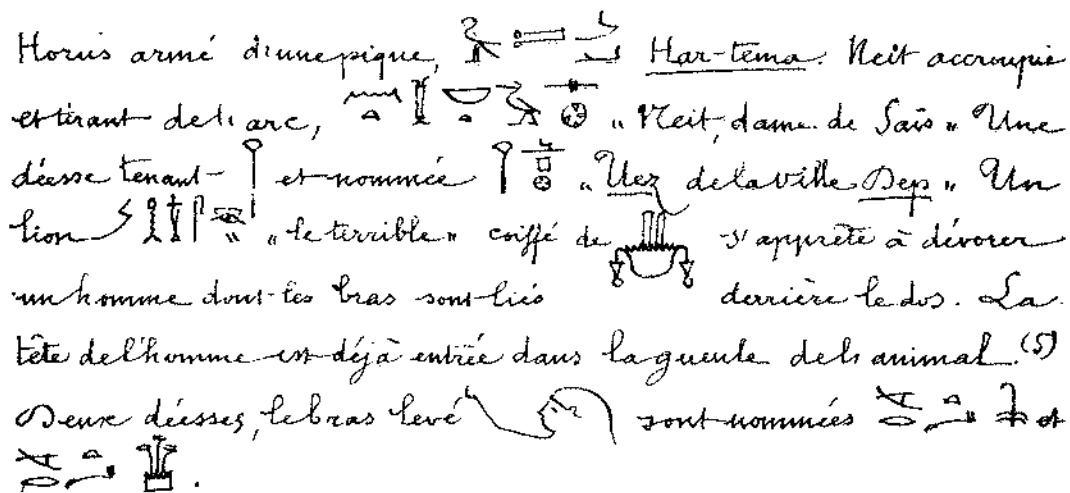 Horus armé d'une pique, Har-tema. Neit accroupie
et tirant de l'arc, „ Neit, dame de Saïs „ Une
déesse tenant et nommée „ Uez de la ville Dep „ Un
lion „ le terrible „ coiffé de s'apprête à dévorer
un homme dont les bras sont liés derrière le dos. La
tête de l'homme est déjà entrée dans la gueule de l'animal. (5)
Deux déesses, le bras levé sont nommées et
.